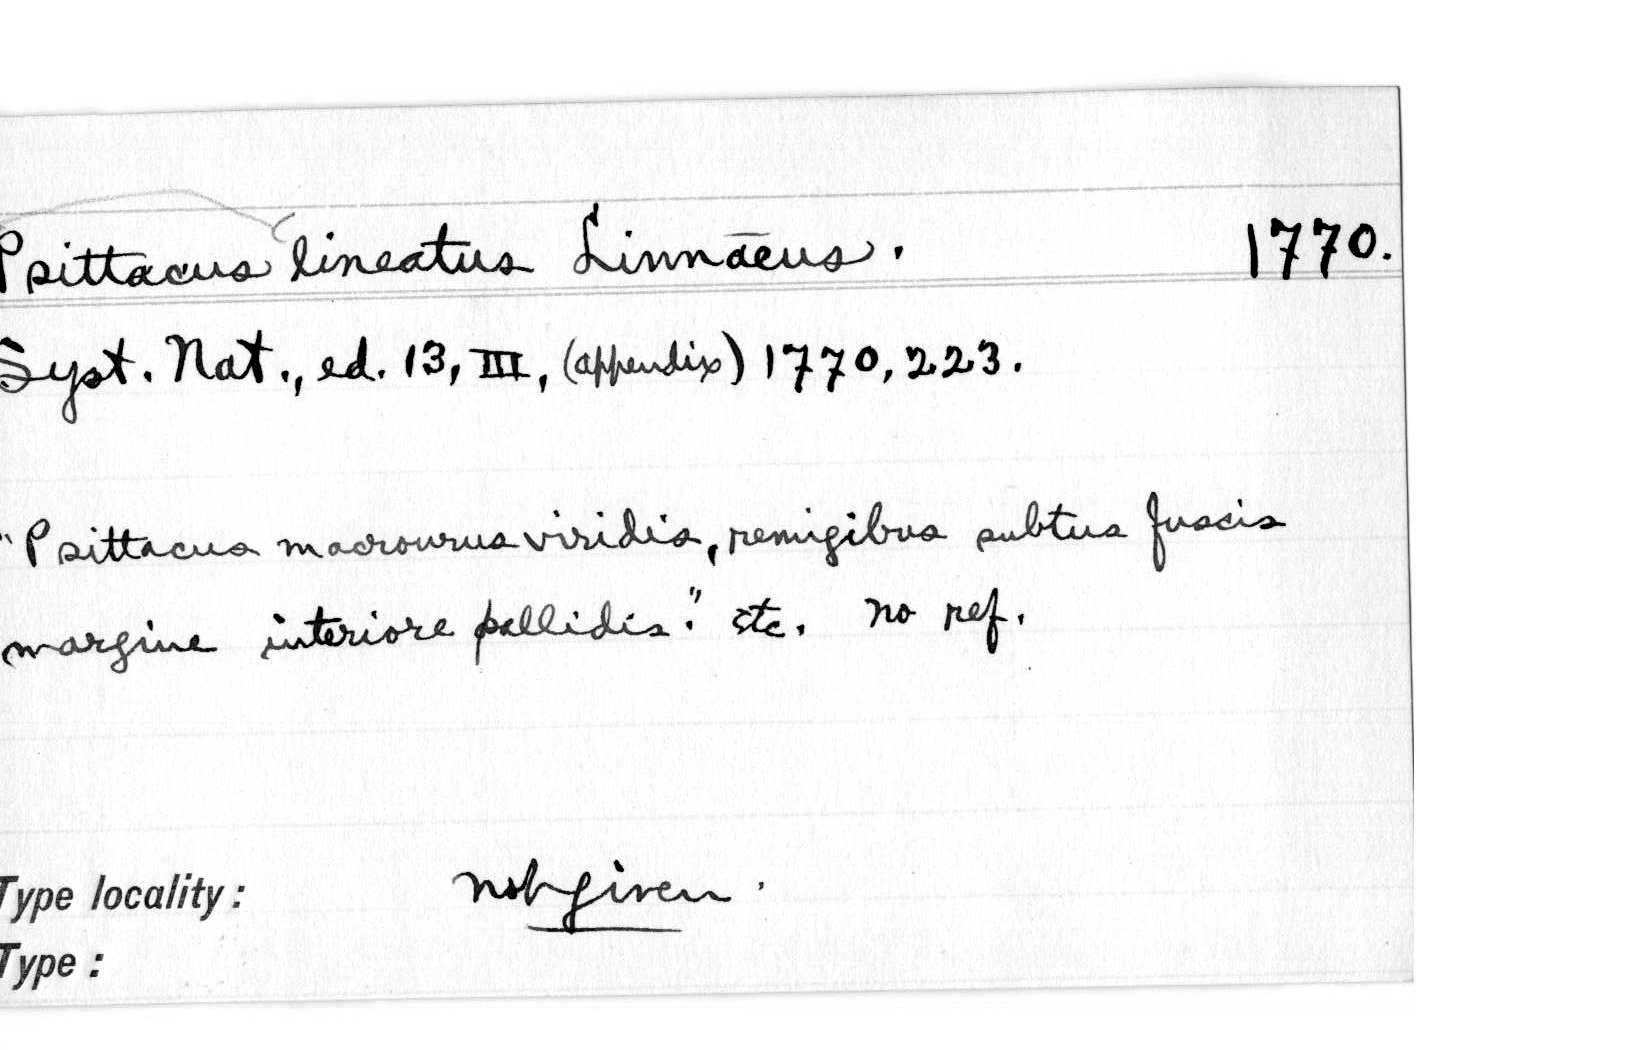 Psittacus lineatus Linnaeus. 1770.
Syst. Nat., ed. 13, III, (appendix) 1770, 223.
"Psittacus macrourus viridis, remigibus subtus fuscis
margine interiore pallidis." etc. no ref.
Type locality: not given.
Type: